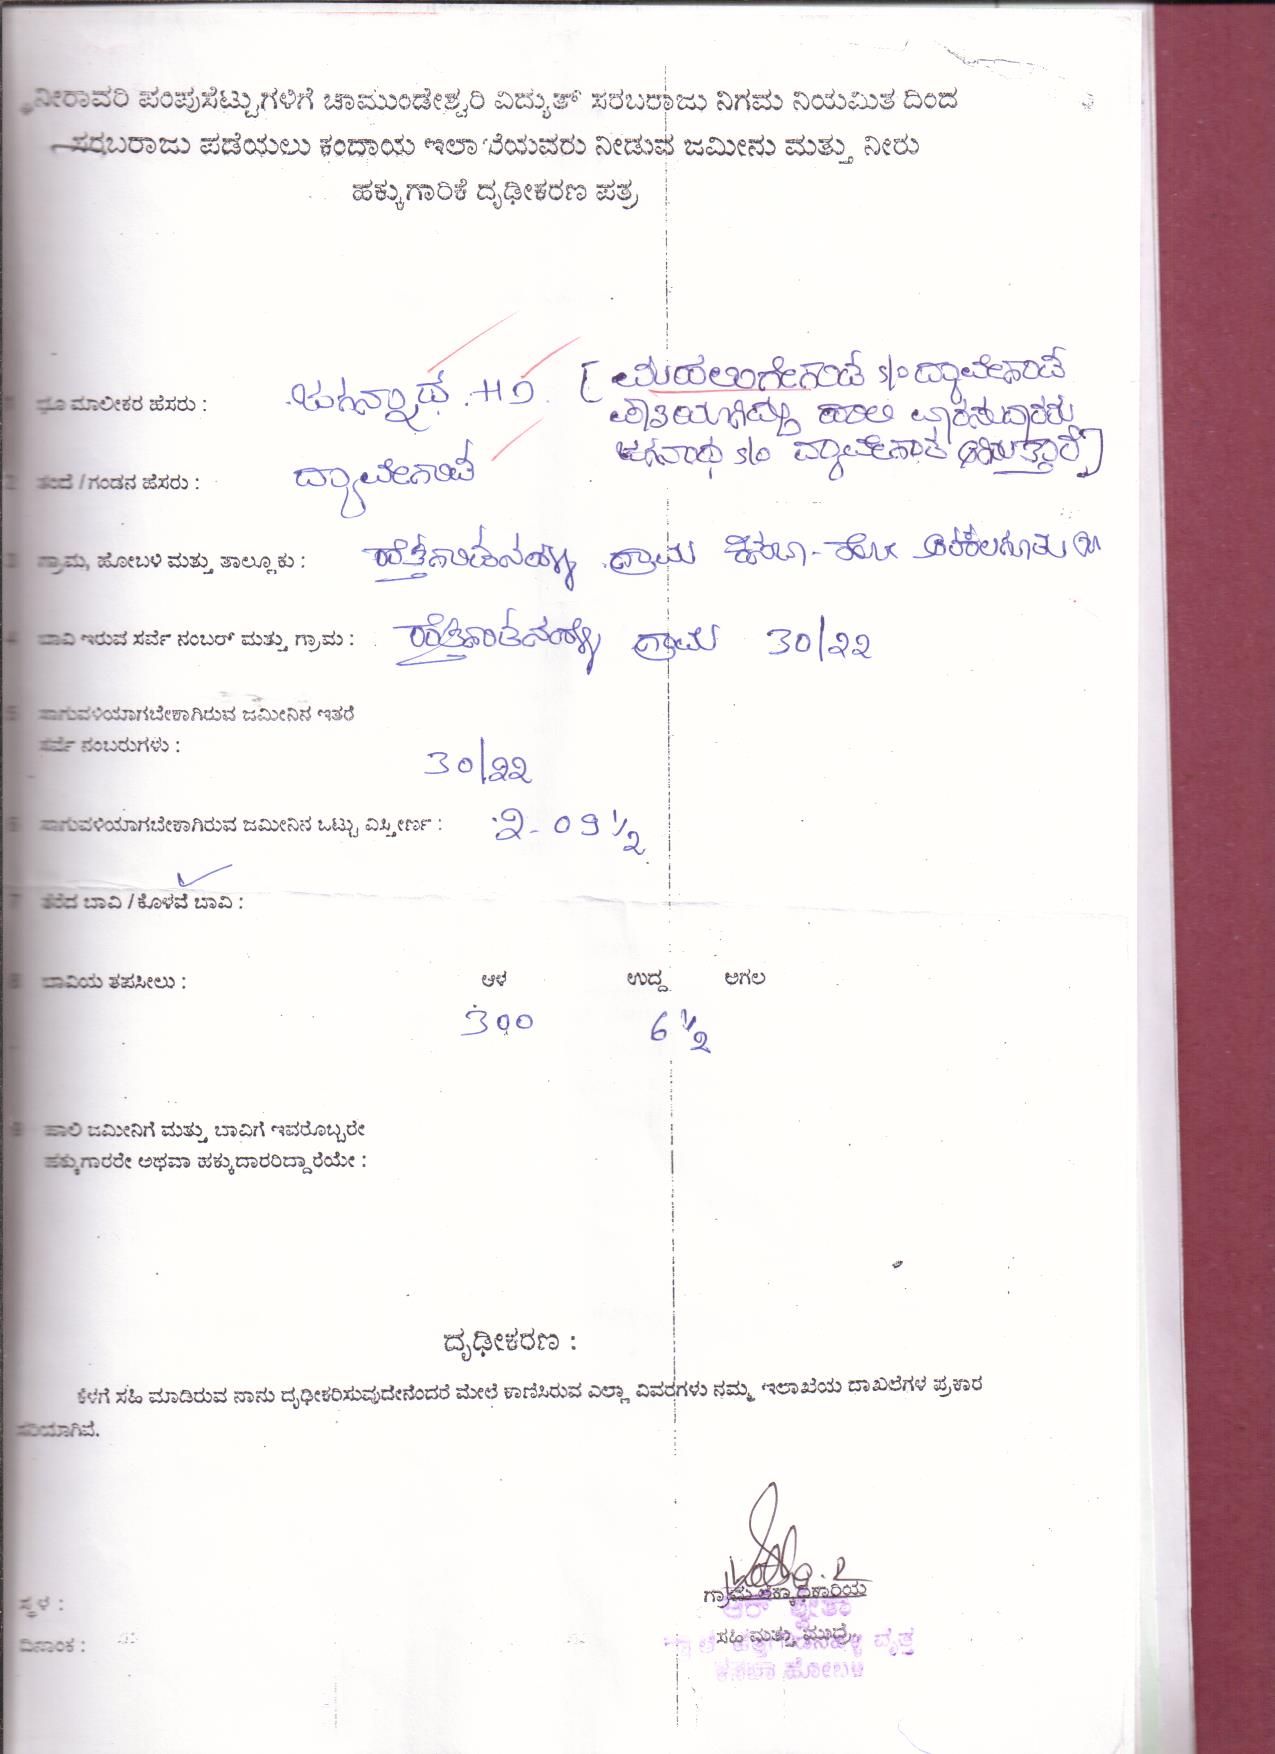 ನೀರಾವರಿ ಪಂಪುಸೆಟ್ಟುಗಳಿಗೆ ಚಾಮುಂಡೇಶ್ವರಿ ವಿದ್ಯುತ್ ಸರಬರಾಜು ನಿಗಮ ನಿಯಮಿತ ದಿಂದ
ಸರಬರಾಜು ಪಡೆಯಲು ಕಂದಾಯ ಇಲಾಖೆಯವರು ನೀಡುವ ಜಮೀನು ಮತ್ತು ನೀರು
ಹಕ್ಕುಗಾರಿಕೆ ದೃಢೀಕರಣ ಪತ್ರ
1 ಭೂ ಮಾಲೀಕರ ಹೆಸರು : ಜಗನ್ನಾಥ .H D.
ಜಗನಾಥ s/o ದ್ಯಾವೇಗೌಡ ಆಗಿರುತ್ತಾರೆ)
2 ತಂದೆ / ಗಂಡನ ಹೆಸರು : ದ್ಯಾವೇಗೌಡ
3 ಗ್ರಾಮ, ಹೋಬಳಿ ಮತ್ತು ತಾಲ್ಲೂಕು : ಹೆತ್ತಗೌಡನಹಳ್ಳಿ ಗ್ರಾಮ ಕಸಬಾ - ಹೋ ಅರಕಲಗೂಡು ತಾ
4 ಬಾವಿ ಇರುವ ಸರ್ವೆ ನಂಬರ್ ಮತ್ತು ಗ್ರಾಮ : ಹೆತ್ತಗೌಡನಹಳ್ಳಿ ಗ್ರಾಮ 30/22
5 ಸಾಗುವಳಿಯಾಗಬೇಕಾಗಿರುವ ಜಮೀನಿನ ಇತರೆ
ಸರ್ವೆ ನಂಬರುಗಳು :
30/22
6 ಸಾಗುವಳಿಯಾಗಬೇಕಾಗಿರುವ ಜಮೀನಿನ ಒಟ್ಟು ವಿಸ್ತೀರ್ಣ : 2-09 1/2
7 ತೆರೆದ ಬಾವಿ / ಕೊಳವೆ ಬಾವಿ :
8 ಬಾವಿಯ ತಪಸೀಲು : ಆಳ ಉದ್ದ ಅಗಲ
300 6 1/2
9 ಹಾಲಿ ಜಮೀನಿಗೆ ಮತ್ತು ಬಾವಿಗೆ ಇವರೊಬ್ಬರೇ
ಹಕ್ಕುಗಾರರೇ ಅಥವಾ ಹಕ್ಕುದಾರರಿದ್ದಾರೆಯೇ :
ದೃಢೀಕರಣ :
ಕೆಳಗೆ ಸಹಿ ಮಾಡಿರುವ ನಾನು ದೃಢೀಕರಿಸುವುದೇನೆಂದರೆ ಮೇಲೆ ಕಾಣಿಸಿರುವ ಎಲ್ಲಾ ವಿವರಗಳು ನಮ್ಮ ಇಲಾಖೆಯ ದಾಖಲೆಗಳ ಪ್ರಕಾರ
ಸರಿಯಾಗಿವೆ.
ಗ್ರಾಮ ಲೆಕ್ಕಾಧಿಕಾರಿಯ
ಆರ್ ಶ್ವೇತಾ
ಸ್ಥಳ :
ಸಹಿ ಮತ್ತು ಮುದ್ರೆ
ದಿನಾಂಕ :
ವೃತ್ತ
ಕಸಬಾ ಹೋಬಳಿ